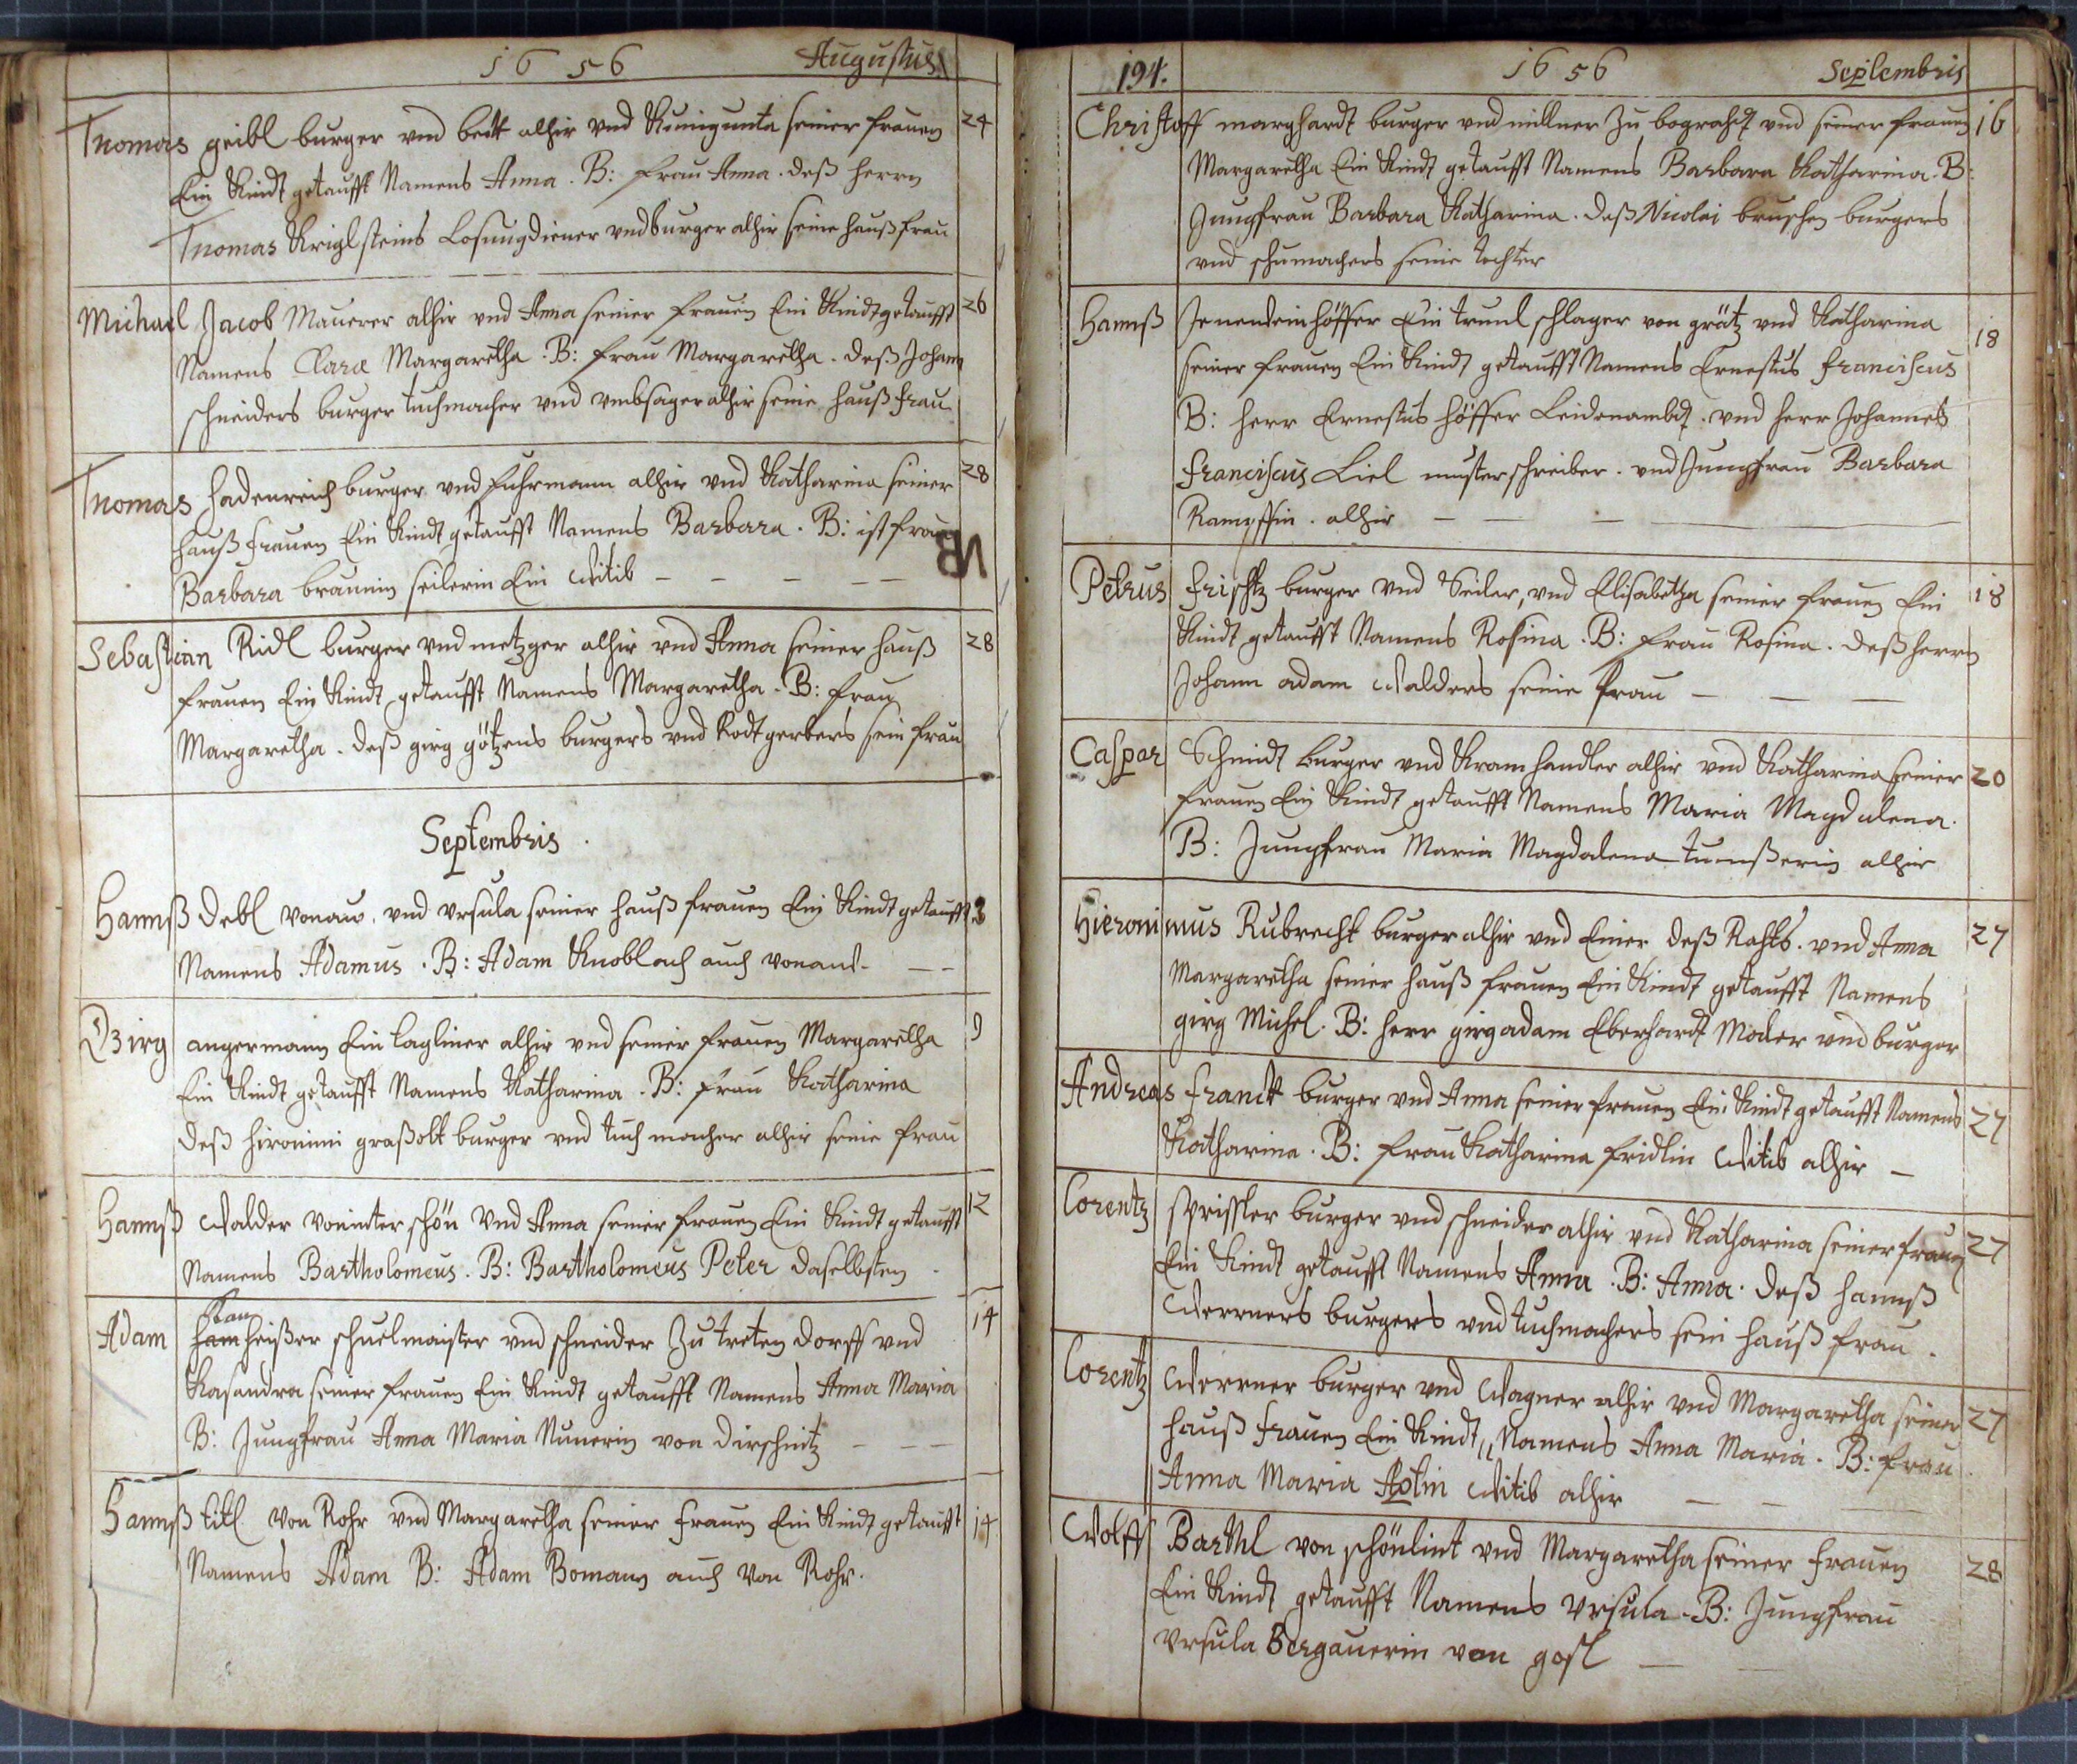 1656 Augustus
Thomas geibl burger vnd beckh alhir vnd Kunigunta seiner frauen 24
Ein Kindt getaufft Namens Anna. B: frau Anna. deß herrn
Thomas Kriglsteins Losungdiener vnd burger alhir seine hauß frau
Michael Jacob Mauerer alhir vnd Anna seiner frauen Ein Kindt getaufft 26
Namens Clara Margaretha. B: frau Margaretha. deß Johann
schneiders burger tuchmacher vnd vmbsager alhir seine hauß frau
Thomas hadenreich burger vnd fuhrmann alhir vnd Katharina seiner 28
hauß frauen Ein Kindt getaufft Namens Barbara. B: ist frau NB
Barbara braunin seilerin Ein Witib
Sebastian Ridl burger vnd metzger alhir vnd Anna seiner hauß 28
frauen Ein Kindt getaufft Namens Margaretha. B: frau
Margaretha. deß girg götzens burgers vnd Rodtgerbers sein frau
Septembris.
Hannß Debl vonaw. vnd vrsula seiner hauß frauen Ein Kindt getaufft 3
Namens Adamus. B: Adam Knobloch auch vonaw.
Girg angermann Ein taglöner alhir vnd seiner frauen Margaretha 9
Ein Kindt getaufft Namens Katharina. B: frau Katharina
deß hironimi graßolt burger vnd tuchmacher alhir seine frau
Hannß Walder voninter schön vnd Anna seiner frauen Ein Kindt getaufft 12
Namens Bartholomeus. B: Bartholomeus Peter daselbsten.
Adam heißer schuelmaister vnd schneider Zu tretendorff vnd 14
Kasandra seiner frauen Ein Kindt getaufft Namens Anna Maria
B: Jungfrau Anna Maria Nunerin von dirschnitz
Hannß titl von Rohr vnd Margaretha seiner frauen Ein Kindt getaufft 14
Namens Adam B: Adam Bomann auch von Rohr.
194. 1656 Septembris
Christoff marghardt burger vnd millner Zu vnd seiner frauen 16
Margaretha Ein Kindt getaufft Namens Barbara Katharina. B:
Jungfrau Barbara Katharina. deß Nicolai bruschen burgers
vnd schumachers seine tochter
Hannß Ein truml schlager von grätz vnd Katharina 18
seiner frauen Ein Kindt getaufft Namens Ernestus franciscus
B: herr Ernestus höffer vnd herr Johannes
franciscus Liel musterschreiber. vnd Jungfrau Barbara
Rampffin. alhir
Petrus frischtz burger vnd Seiler, vnd Elisabetha seiner frauen Ein 18
Kindt getaufft Namens Rosina. B: frau Rosina. deß herrn
Johann adam Walders seine frau
Caspar Schmidt burger vnd Kramhandler alhir vnd Katharina seiner 20
frauen Ein Kindt getaufft Namens Maria Magdalena.
B: Jungfrau Maria Magdalena alhir
Hieronimus Rubrecht burger alhir vnd Einer deß Rahts. vnd Anna 27
Margaretha seiner hauß frauen Ein Kindt getaufft Namens
girg Michel. B: herr girg adam Eberhardt Moler vnd burger
Andreas franck burger vnd Anna seiner frauen Ein Kindt getaufft Namens 27
Katharina. B: frau Katharina fridlin Witib alhir
Lorentz sprissler burger vnd schneider alhir vnd Katharina seiner frauen 27
Ein Kindt getaufft Namens Anna. B: Anna. deß hannß
Werners burgers vnd tuchmachers sein hauß frau.
Lorentz Werner burger vnd Wagner alhir vnd Margaretha seiner 27
hauß frauen Ein Kindt „ Namens Anna Maria. B: frau
Anna Maria Witib alhir
Wolff Barthl von schönlint vnd Margaretha seiner frauen 28
Ein Kindt getaufft Namens Vrsula. B: Jungfrau
Vrsula Bergauerin von gosl